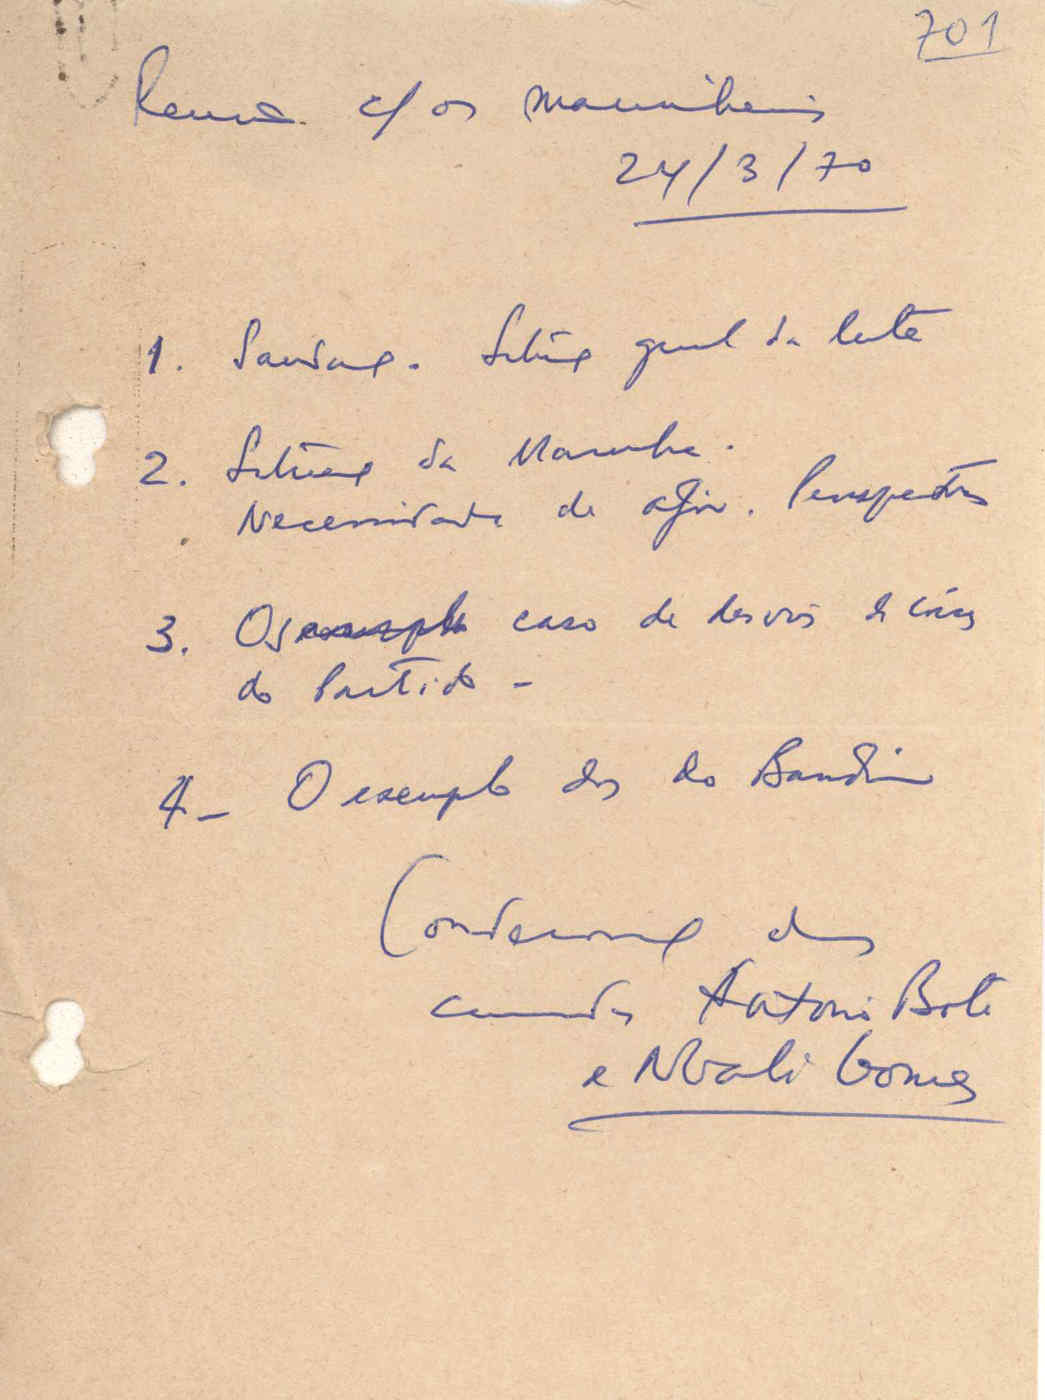 701
Reunião c/ os marinheiros
24/3/70
1. Saudação. Situação geral da luta
2. Situação da Marinha.
Necessidade de agir. Perspectivas
3. Os caso de desvios de coisas
do Partido -
4 - O exemplo dos do Bandim
Condecoração dos
camaradas António Boté
e N'Bali Gomes